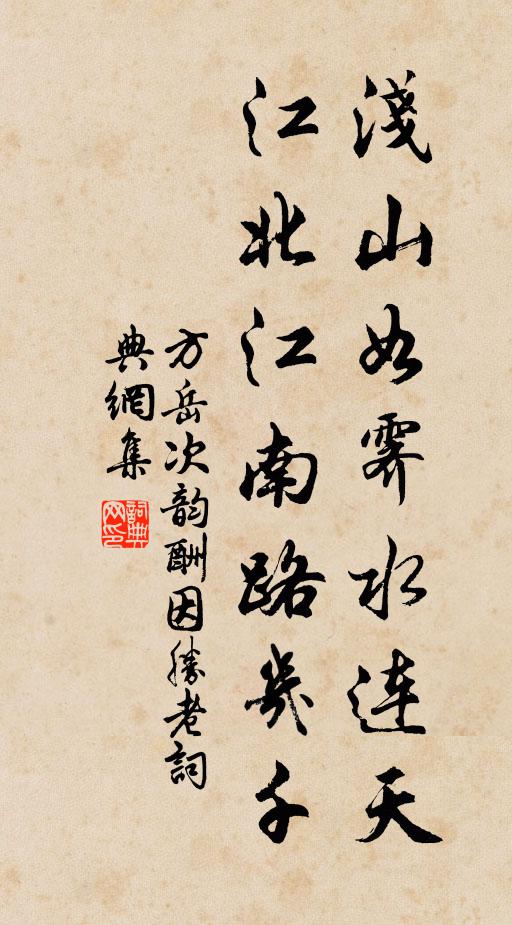 淺山如霽水連天
江北江南路幾千
方岳次韵酬因勝老詞
典網集
詞典网印